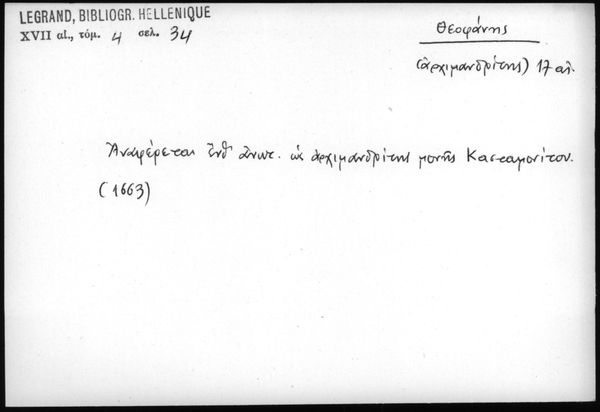 LEGRAND, BIBLIOGR. HELLENIQUE
XVII αἰ., τόμ. 4 σελ. 34
Θεοφάνης
(ἀρχιμανδρίτης) 17 αἰ.
Ἀναφέρεται ἔνθ' ἀνωτ. ὡς ἀρχιμανδρίτης μονῆς Κασταμονίτου.
(1663)